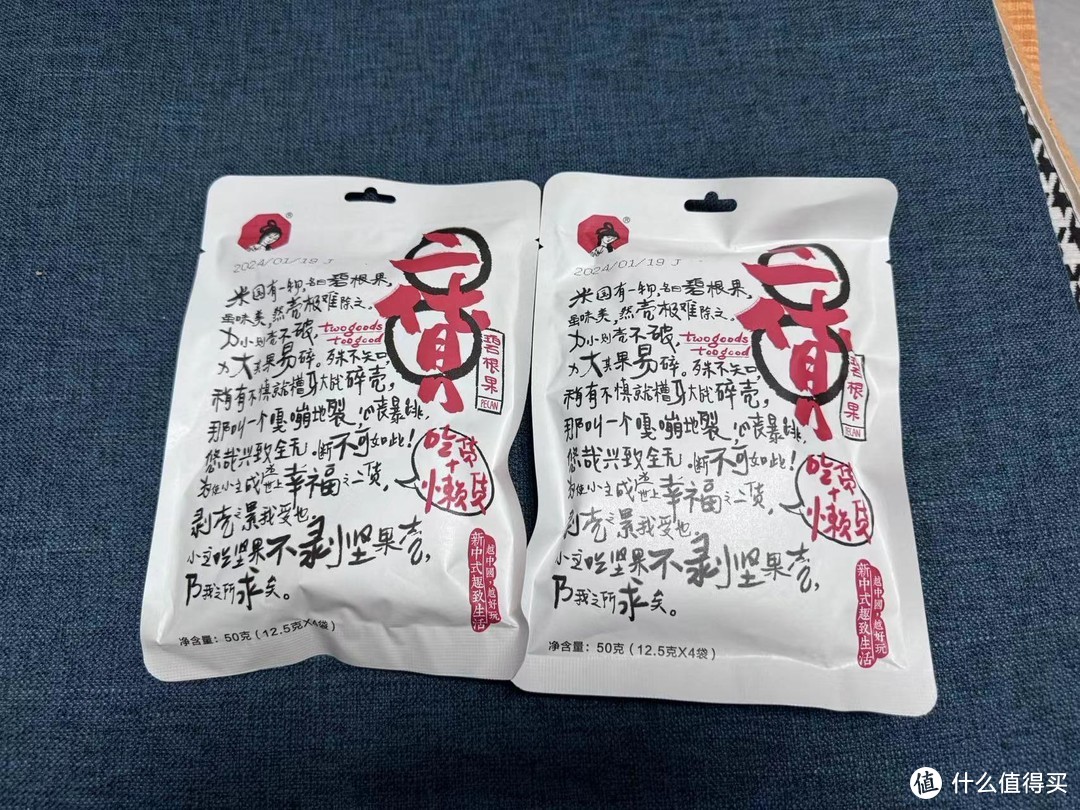 2024/01/19 J
二货
twogoods
toogood
碧根果
PECAN
米国有一物,名曰碧根果,
虽味美,然壳极难除之。
力小则壳不破,
力大其果易碎。殊不知
稍有不慎就槽牙大战碎壳,
那叫一个嘎嘣地裂,心丧暴跳,
悠哉兴致全无。断不可如此!
为使小主成世上幸福之二货,
剥壳之累我受也,
小主吃坚果不剥坚果壳,
乃我之所求矣。
吃货
+
懒货
越中國,越好玩
新中式趣致生活
净含量:50克(12.5克X4袋)
2024/01/19 J
二货
twogoods
toogood
碧根果
PECAN
米国有一物,名曰碧根果,
虽味美,然壳极难除之。
力小则壳不破,
力大其果易碎。殊不知
稍有不慎就槽牙大战碎壳,
那叫一个嘎嘣地裂,心丧暴跳,
悠哉兴致全无。断不可如此!
为使小主成世上幸福之二货,
剥壳之累我受也,
小主吃坚果不剥坚果壳,
乃我之所求矣。
吃货
+
懒货
越中國,越好玩
新中式趣致生活
净含量:50克(12.5克X4袋)
值 什么值得买